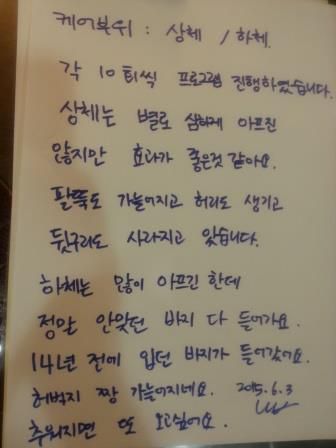 케어부위 : 상체 / 하체.
각 10회씩 프로그램 진행하였습니다.
상체는 별로 심하게 아프진
않지만 효과가 좋은것 같아요.
팔뚝도 가늘어지고 허리도 생기고
뒷구리도 사라지고 있습니다.
하체는 많이 아프긴 한데
정말 안맞던 바지 다 들어가요.
14년 전에 입던 바지가 들어갔어요.
허벅지 짱 가늘어지네요. 2015.6.3
추워지면 또 오고싶어요.